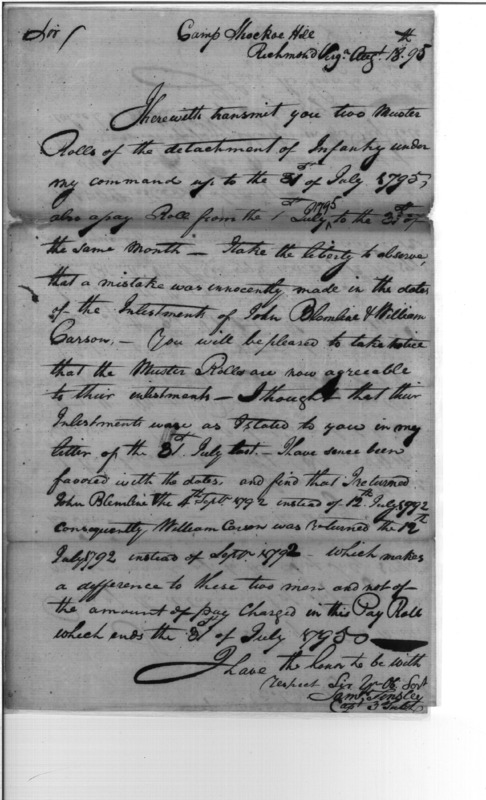 Sir / Camp Shockoe Hill
Richmond Virga. Augt. 18. 95
I herewith transmit you two Muster
Rolls of the detachment of Infantry under
my command up to the 31st of July 1795,
also a pay Roll from the 1st July, 1795 to the 31st of
the same month — I take the liberty to observe,
that a mistake was innocently made in the dates
of the Inlistments of John Blemline & William
Carson, — You will be pleased to take notice
that the Muster Rolls are now agreeable
to their enlistments — I thought that their
Inlistments ware as I stated to you in my
letter of the 31st July last. I have sence been
favored with the dates, and find that I returned
John Blemline the 4th Septr. 1792 instead of 12th July 1792
consequently William Carson was returned the 12th
July 1792 instead of Septr. 1792 — which makes
a difference to these two men and not of
the amount of pay Charged in this Pay Roll
which ends the 31st of July 1795
I have the honor to be with
respect Sir Yr Ob. Servt
Saml. Tinsley
Capt 3d